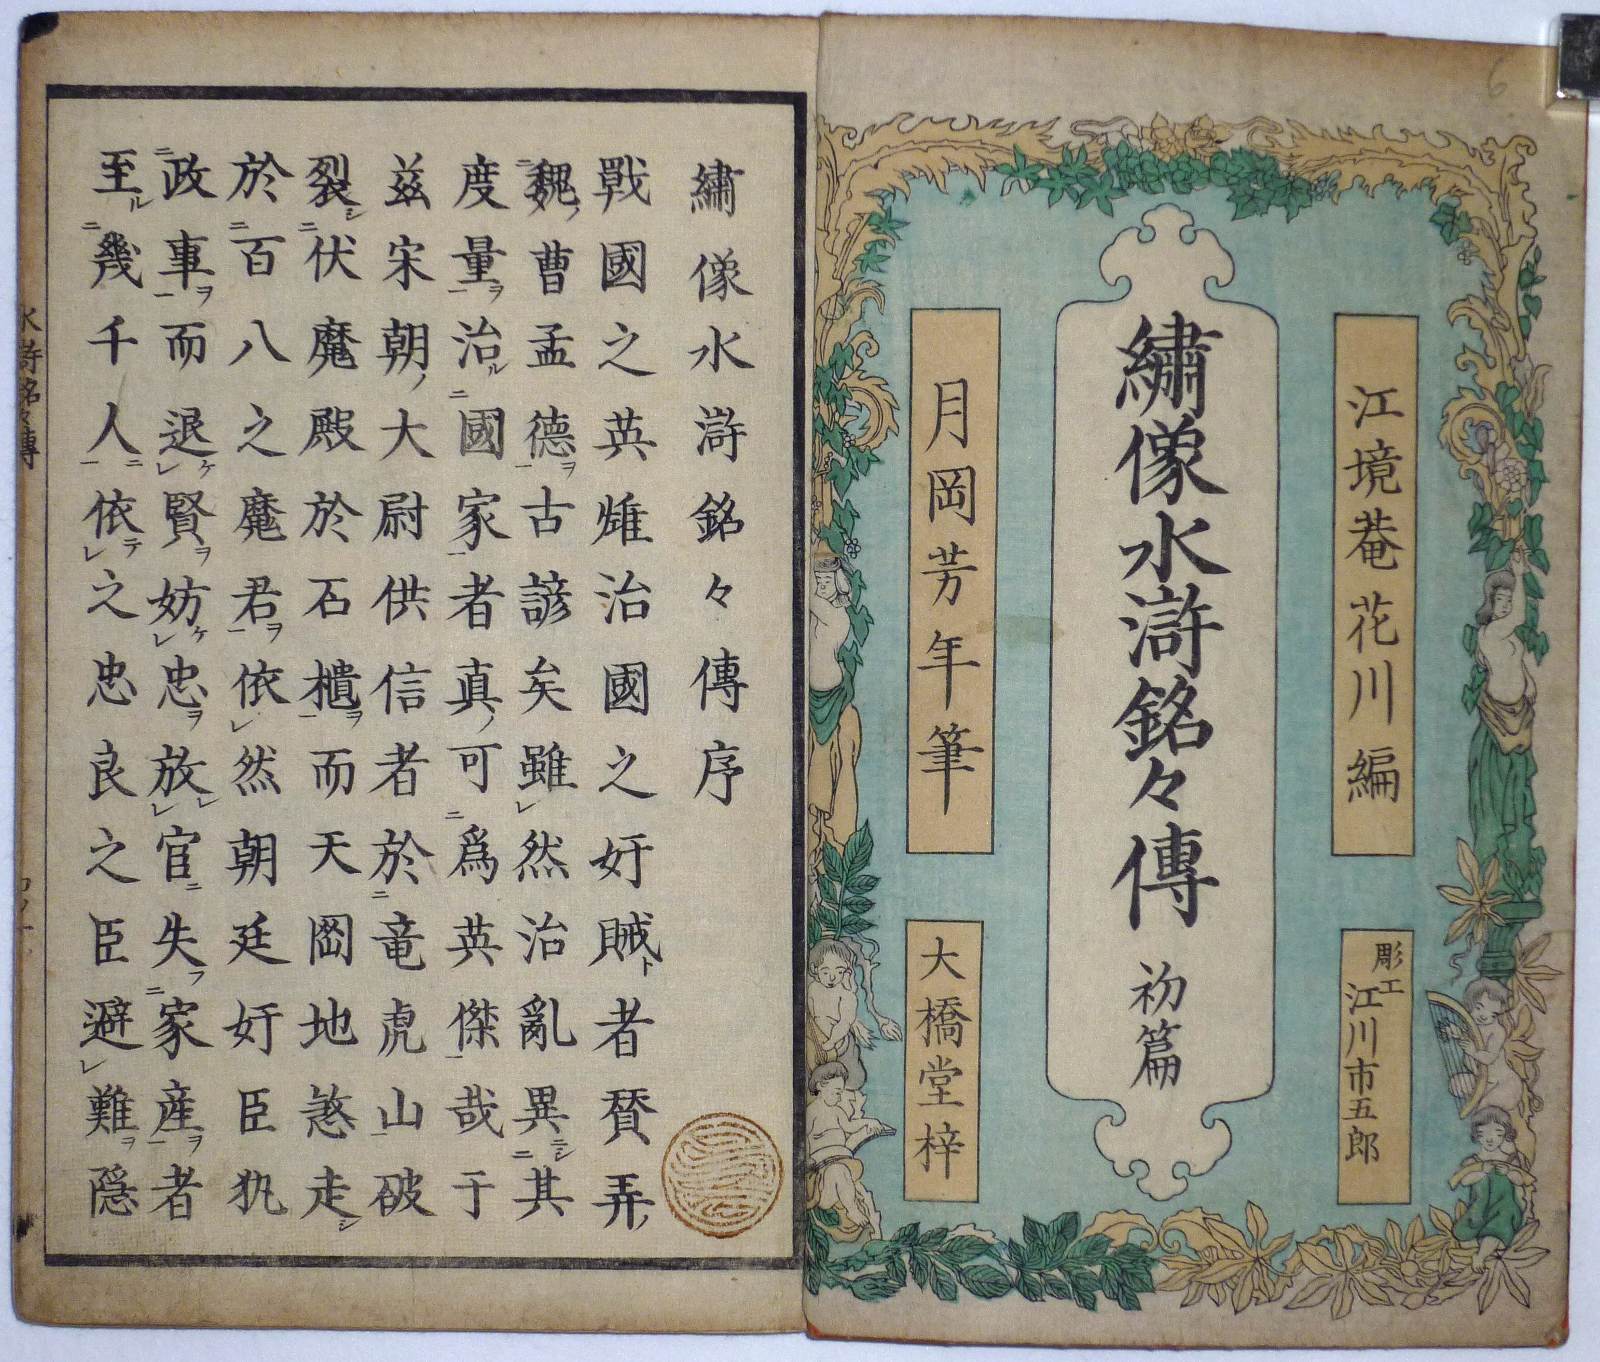 江境菴花川編
彫工
江川市五郎
繡像水滸銘々傳 初篇
月岡芳年筆
大橋堂梓
繡像水滸銘々傳序
戰國之英雄治國之奸賊ト者賛弄ノ
魏ノ曹孟德ヲ古諺矣雖レ然治亂異ニシ其
度量ヲ治ル國家者真ノ可為英傑哉于
茲宋朝ノ大尉供信者於竜虎山破
裂シ伏魔殿於石櫃ヲ而天罡地煞走シ
於百八之魔君ヲ依レ然朝廷奸臣執
政事ヲ而退ケ賢ヲ妨ケ忠ヲ放レ官ニ失フ家産ヲ者
至ル幾千人ニ依テ之忠良之臣避レ難ヲ隠
水滸銘々傳